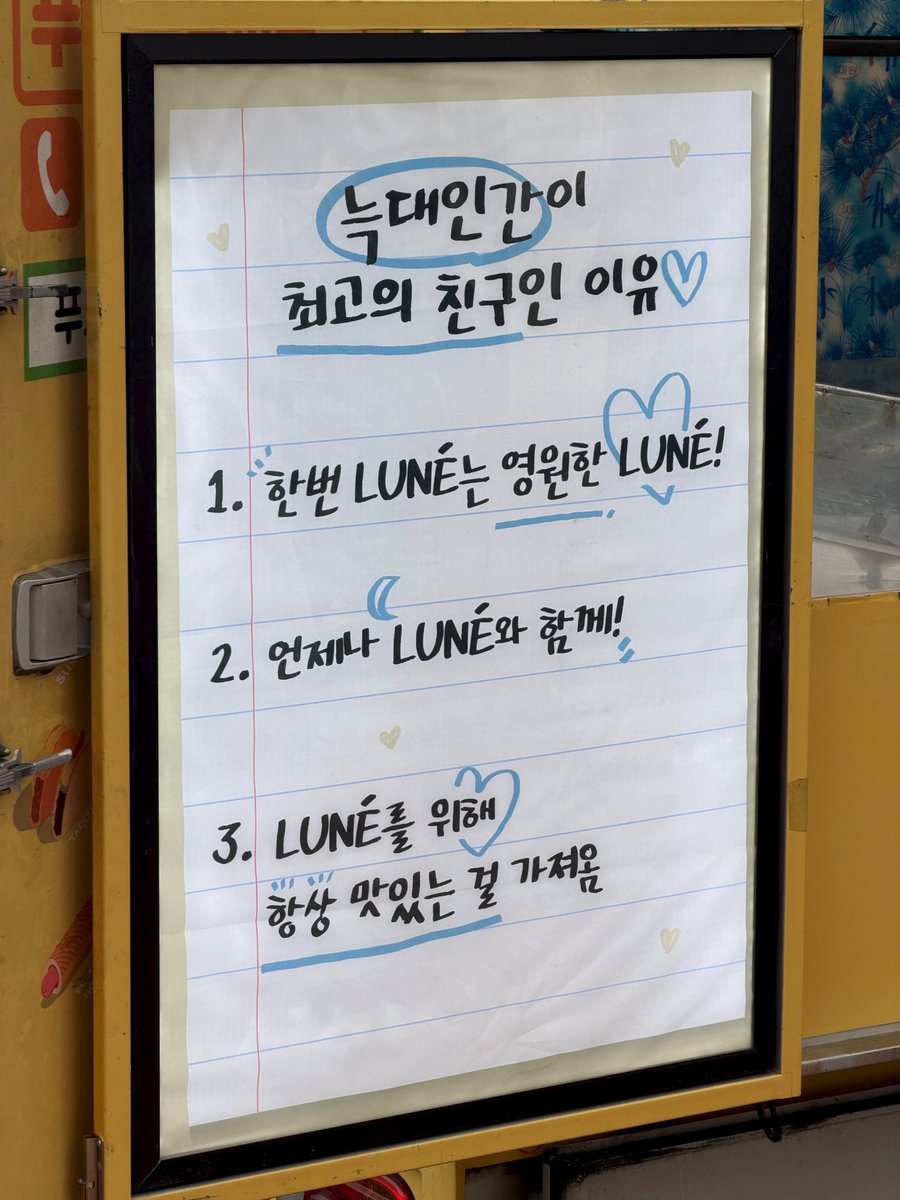 늑대인간이
최고의 친구인 이유
1. 한번 LUNÉ는 영원한 LUNÉ!
2. 언제나 LUNÉ와 함께!
3. LUNÉ를 위해
항상 맛있는 걸 가져옴